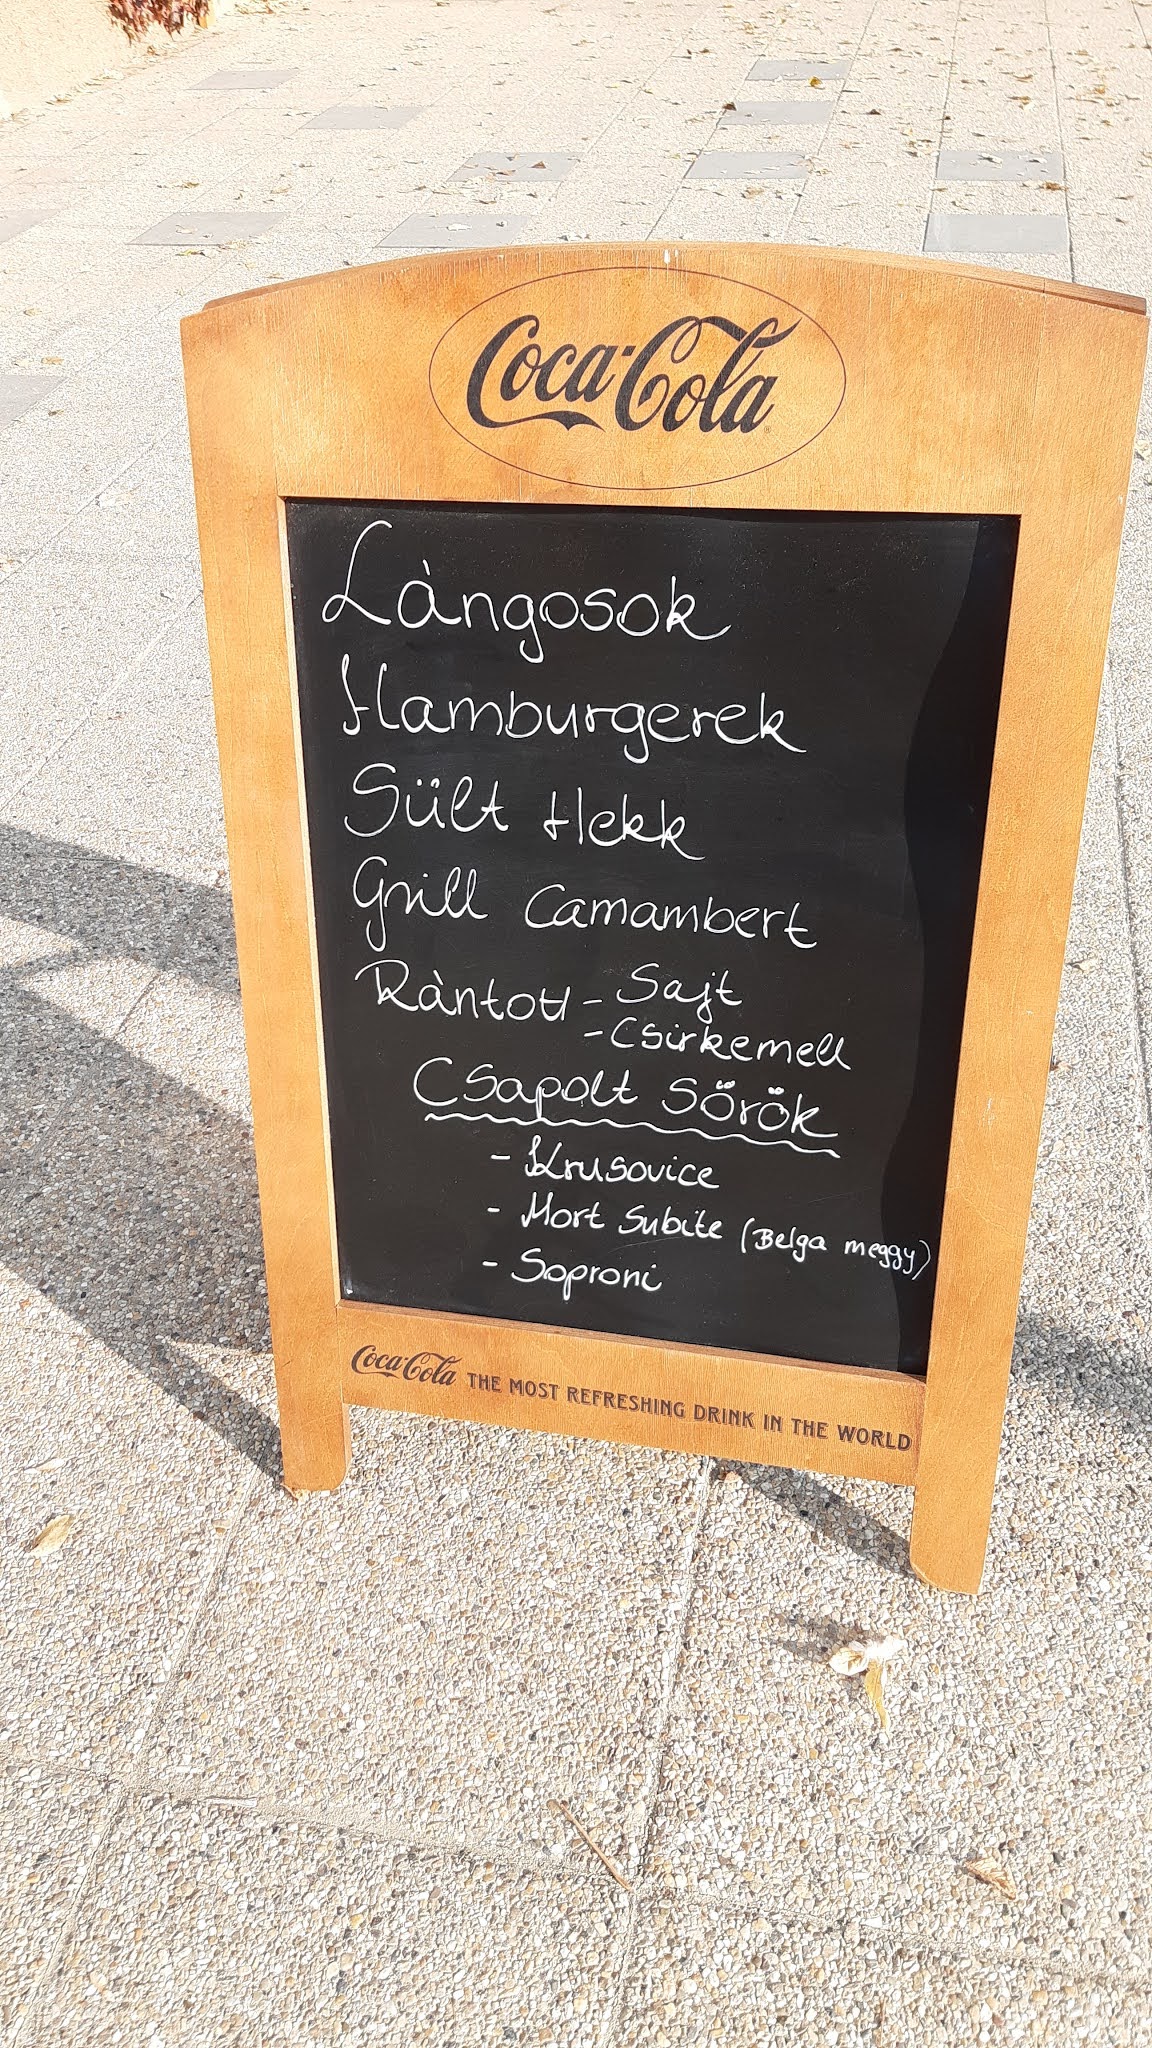 Coca-Cola
Làngosok
Hamburgerek
Sült Hekk
Grill Camambert
Ràntott - Sajt
- Csirkemell
Csapolt Sörök
- Krusovice
- Mort Subite (Belga meggy)
- Soproni
Coca-Cola THE MOST REFRESHING DRINK IN THE WORLD